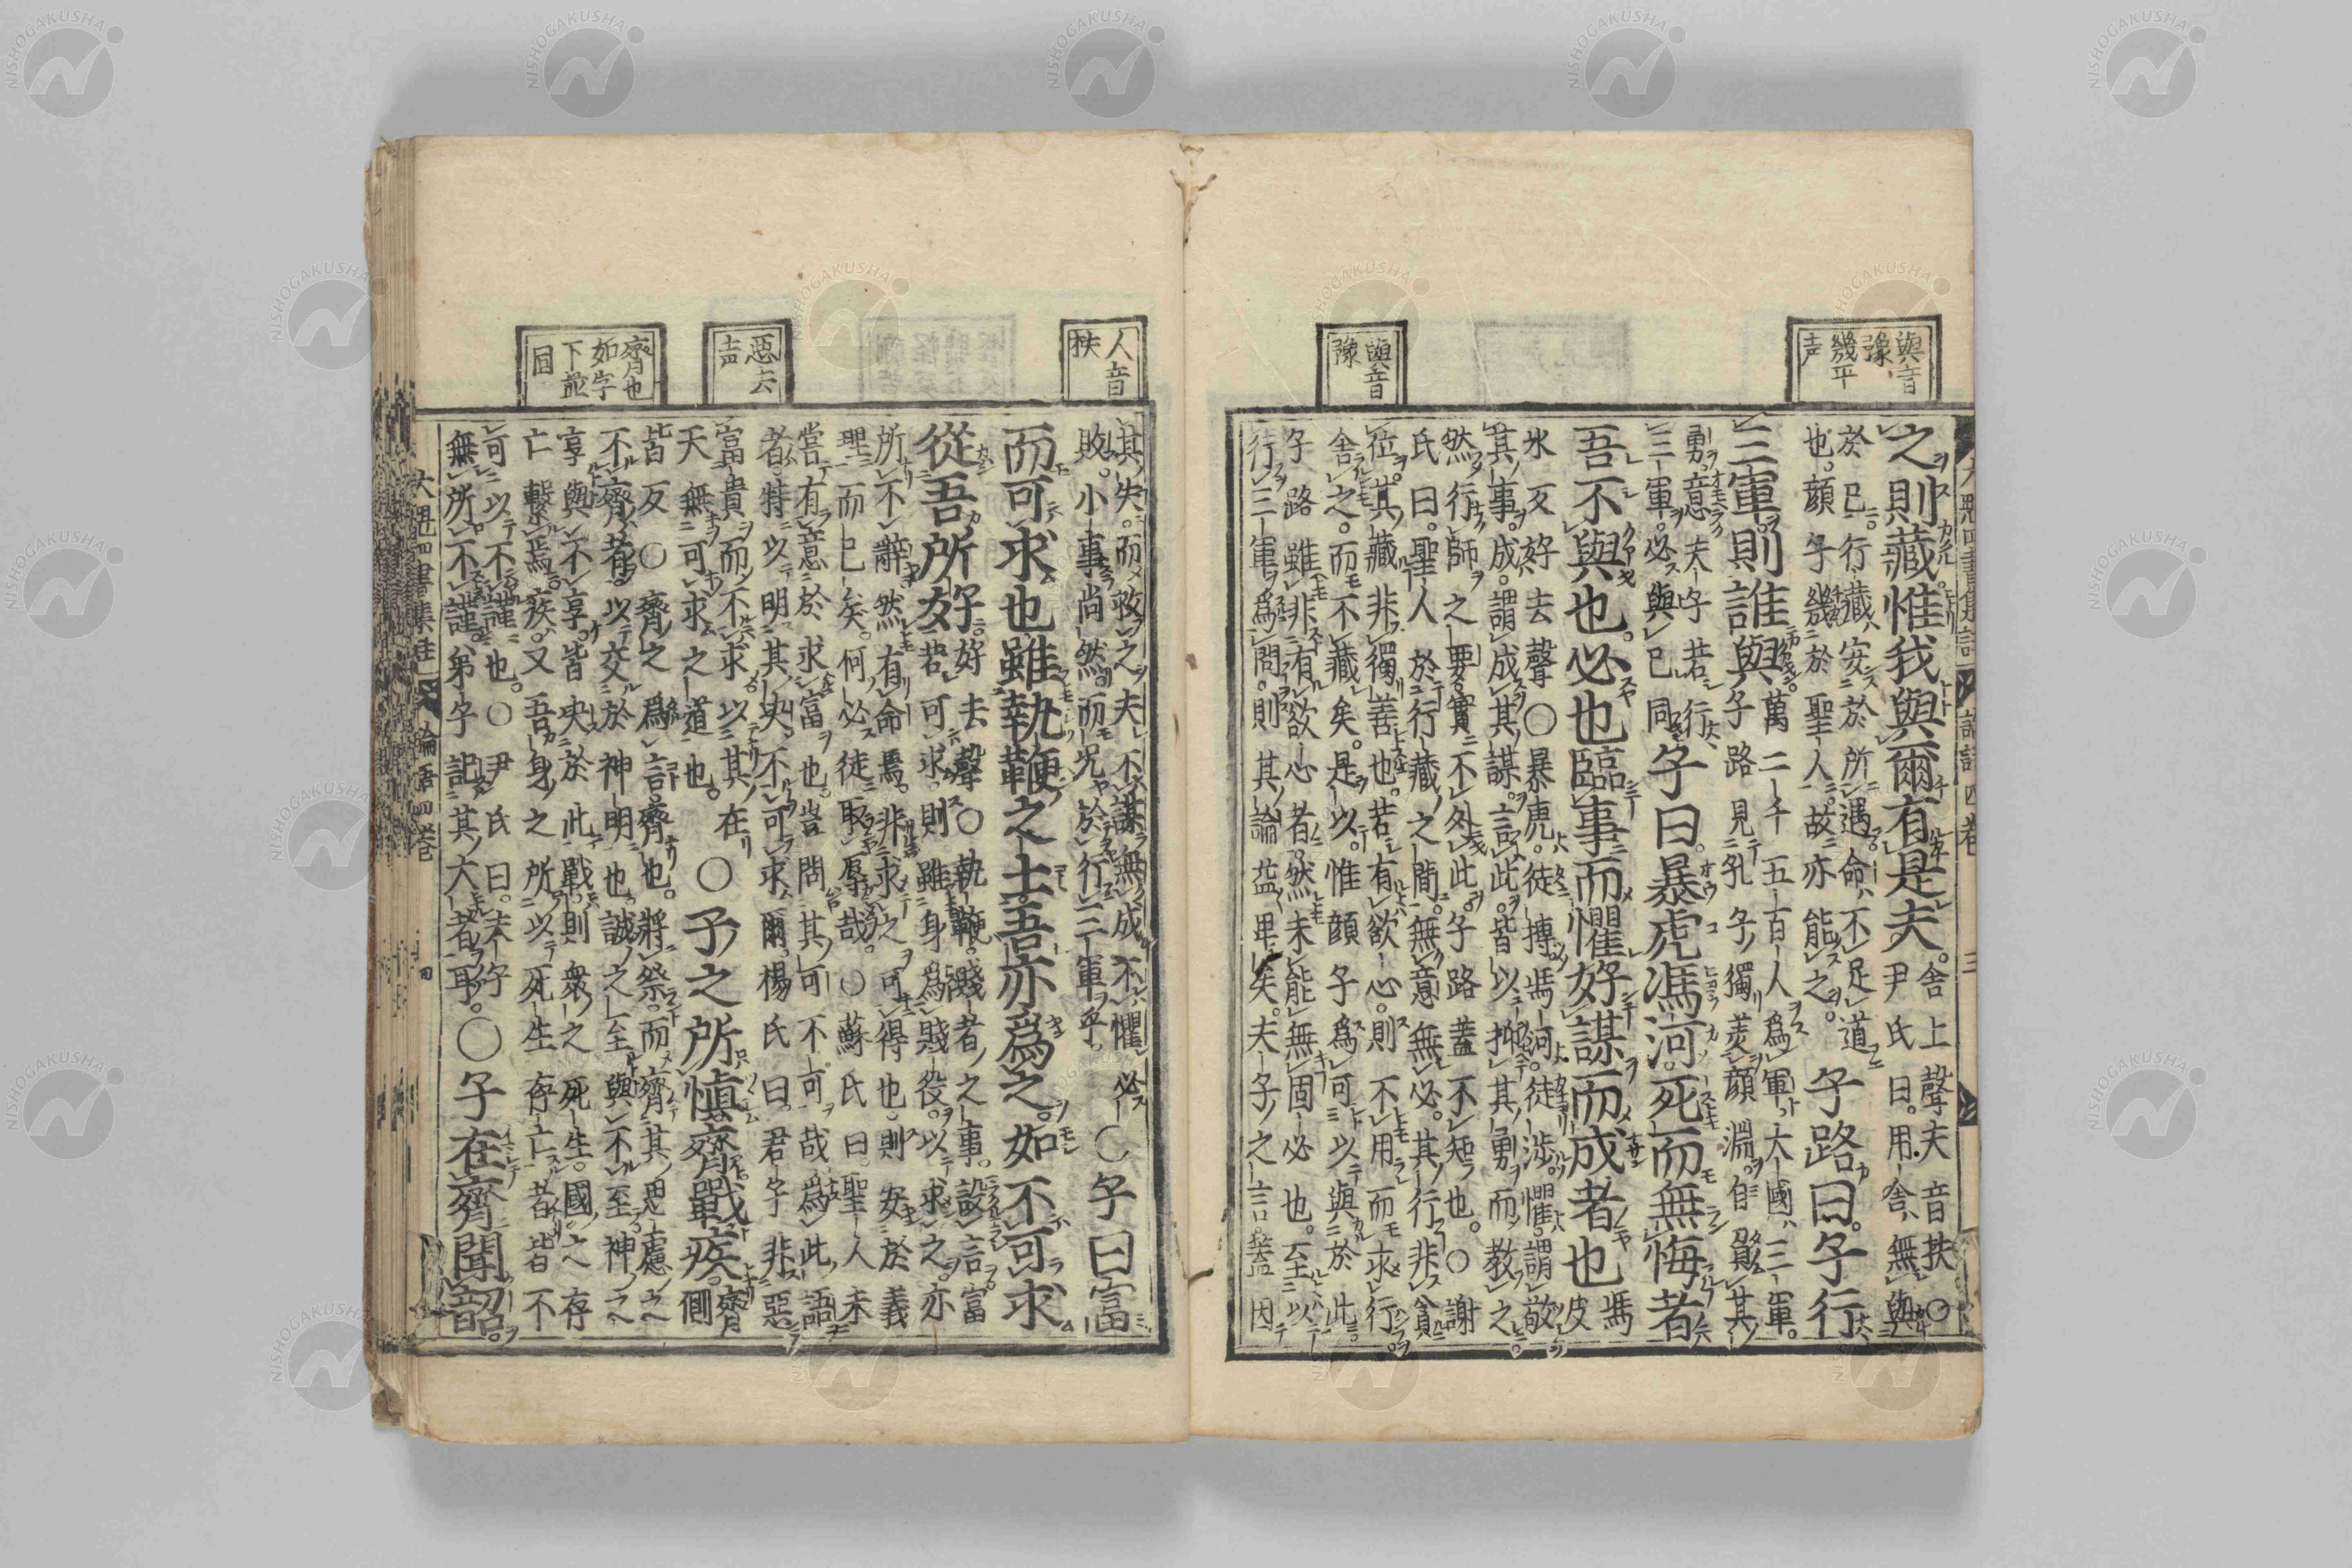 與音
豫
幾平
声
與音
豫
大魁四書集註 論語四卷 三
之則藏惟我與爾有是夫。
舍上聲夫音扶○
尹氏曰。用舍無與
於己。行藏安於所遇命不足道
也。顔子幾於聖人。故亦能之。
子路曰。子行
三軍則誰與
萬二千五百人爲軍大國三軍。
子路見孔子獨羙顔淵。自負其
勇。意夫子若行
三軍。必與己同
子曰。暴虎馮河。死而無悔者
吾不與也。必也臨事而懼好謀而成者也
馮
皮
氷反好去聲○暴虎。徒搏馮河。徒渉。懼。謂敬
其事。成。謂成其謀。言此。皆以抑其勇而教之
然行師之要。實不外此。子路蓋不知也。○謝
氏曰。聖人於行藏之間。無意無必。其行非貪
位。其藏非獨善也。若有欲心。則不用而求行
舍之。而不藏矣。是以。惟顔子爲可以與於此
子路雖非有欲心者。然未能無固必也。至以
行三軍爲問。則其論益卑矣。夫子之言。蓋因
人音
扶
惡去
声
齊也
如字
下並
同
其失。而救之夫不謀無成不懼必
敗。小事尚然而况於行三軍乎。
○子曰富
而可求也雖執鞭之士吾亦爲之。如不可求
從吾所好。
好去聲○執鞭。賤者之事。設言富
若可求。則雖身爲賤役。以求之。亦
所不辭然有命焉。非求之可得也則安於義
理而已矣。何必徒取辱哉。○蘇氏曰。聖人未
嘗有意於求富也。豈問其可不可哉。爲此語
者。特以明其决不可求爾。楊氏曰。君子非惡
富貴而不求以其在
天無可求之道也。
○子之所慎齊戰疾。
齊側
皆反○齊之爲言齊也。將祭。而齊其思慮之
不齊者。以交於神明也。誠之至與不至神之
享與不享。皆决於此。戰。則衆之死生。國之存
亡繫焉。疾又吾身之所以死生存亡者皆不
可以不謹也。○尹氏曰。夫子
無所不謹。弟子記其大者耳。
○子在齊聞韶。
大魁四書集註 論語四卷 四
NISHOGAKUSHA